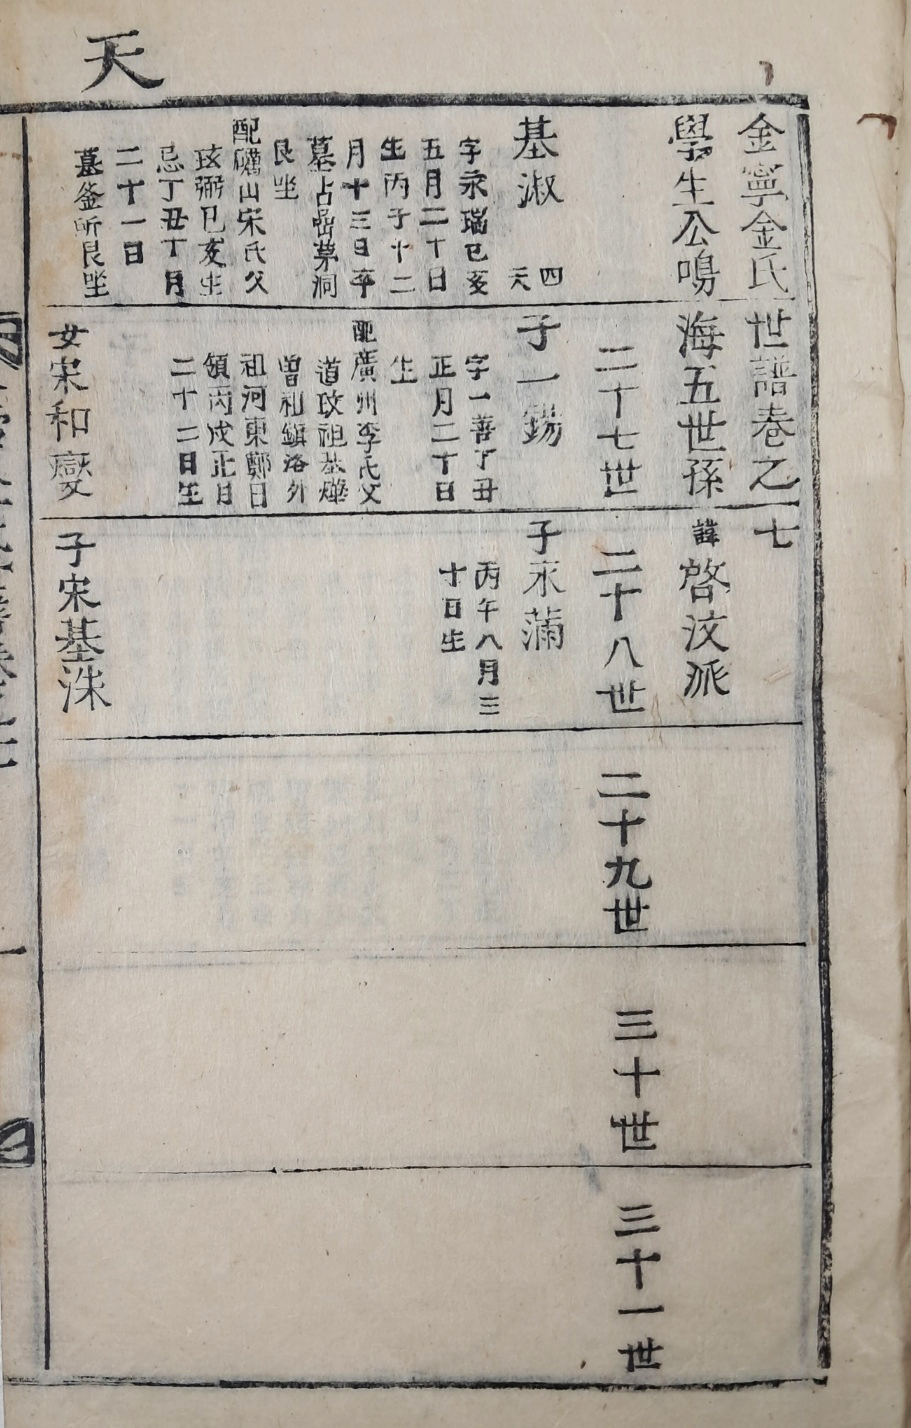 天
金寧金氏世譜卷之七
學生公鳴海五世孫諱啓汶派
二十七世
二十八世
二十九世
三十世
三十一世
基淑
四
天
字永瑞己亥
五月二十日
生丙子十二
月十三日卒
墓占嵒茅洞
艮坐
配礪山宋氏父
玹弼已亥生
忌丁丑丁月
二十一日
墓釜所艮坐
子一錫
字一善丁丑
正月二十日
生
配廣州李氏父
道攻祖基燁
曾祖鎭洛外
祖河東鄭日
領丙戌正日
二十二日生
女宋和燮
子永蒲
丙午八月三
十日生
子宋基洙